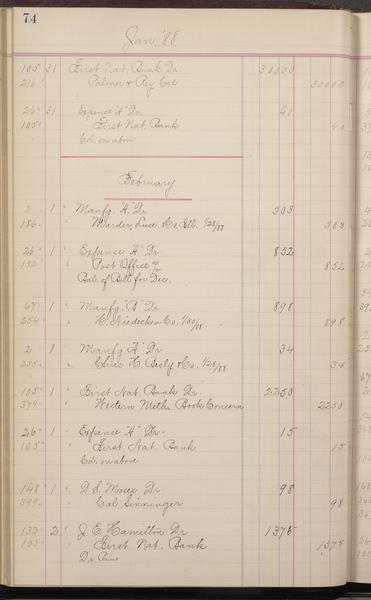 74
Jan, '88.
105 31 First Nat. Bank Dr. 30000
216 Palmer & Rey Cal 30000
26 31 Expense "A" Dr. 40
105 First Nat. Bank 40
Ed. on above
February
2 1 " Manfg. "A" Dr 303
186 " Marder, Luse & Co. Bill. 1/28/88 303
26 1 " Expense "A" Dr 852
132 " Post Office 852
Bal. of Bill for Dec.
67 1 " Manfg. "B" Dr 898
254 " Co. 1/30/88 898
2 1 Manfg "A" Dr 34
235 " Chas. H. Besly & Co. 1/28/88 34
105 1 " First Nat. Bank Dr. 2250
379 " Western Meth. Book Concern 2250
26 1 " Expense "A" Dr. 15
105 " First Nat. Bank 15
Ed. on above
148 1 " D. S. Dr 98
399 " Cal 98
132 2 " J. E. Hamilton Dr 1375
105 " First Nat. Bank 1375
Dr